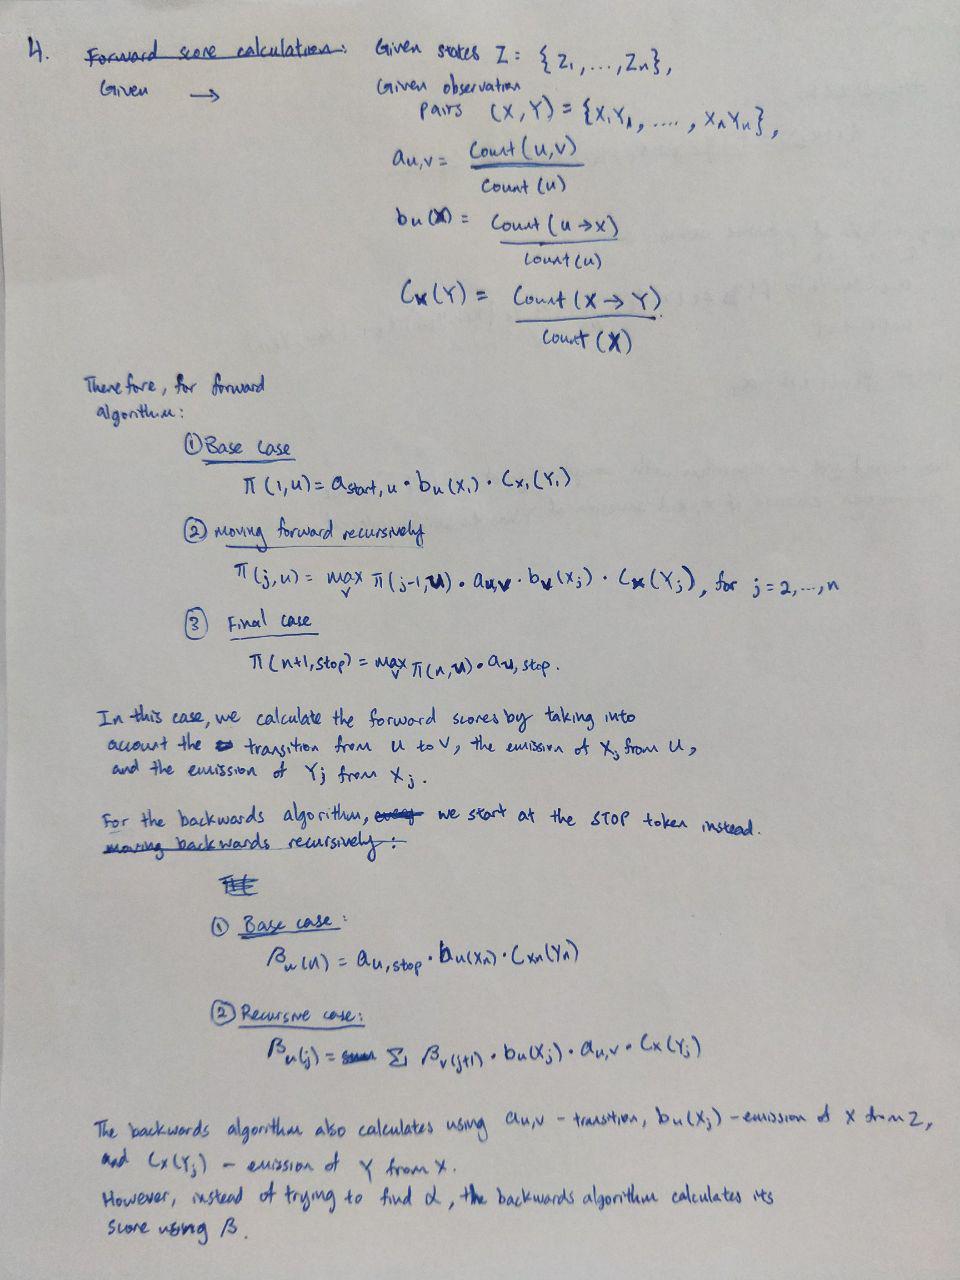 4. Forward score calculation: Given states Z = {Z1, ..., Zn},
Given → Given observation
pairs (X, Y) = {X1Y1, ...., XnYn},
au,v = Count(u,v) / Count(u)
bu(X) = Count(u→x) / Count(u)
Cx(Y) = Count(X→Y) / Count(X)
Therefore, for forward
algorithm:
① Base case
π(1,u) = astart,u · bu(X1) · Cx1(Y1)
② moving forward recursively
π(j,u) = max v π(j-1,u) · au,v · bv(Xj) · Cx(Yj), for j = 2, ..., n
③ Final case
π(n+1,stop) = max v π(n,u) · au,stop.
In this case, we calculate the forward scores by taking into
account the transition from u to v, the emission of Xj from u,
and the emission of Yj from Xj.
For the backwards algorithm, we start at the STOP token instead.
moving backwards recursively:
① Base case:
βu(n) = au,stop · bu(Xn) · Cxn(Yn)
② Recursive case:
βu(j) = Σ βv(j+1) · bu(Xj) · au,v · Cx(Yj)
The backwards algorithm also calculates using au,v - transition, bu(Xj) - emission of X from Z,
and Cx(Yj) - emission of Y from X.
However, instead of trying to find α, the backwards algorithm calculates its
score using β.